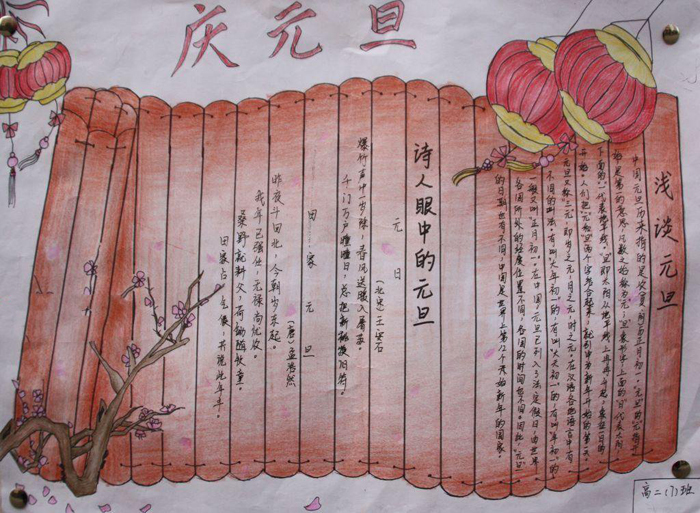 庆元旦
浅谈元旦
中国元旦历来指的是农(夏、阴)历正月初一。"元旦"的"元"指开
始,是第一的意思,凡数之始称为元;"旦"象形字,上面的"日"代表太阳,
下面的"一"代表地平线。"旦"即太阳从地平线上冉冉升起,象征一日的
开始。人们把"元"和"旦"两个字结合起来,就引申为新年开始的第一天。
元旦又称"三元",即岁之元,月之元,时之元。在汉语各地语言中有
不同的叫法,有叫"大年初一"的,有叫"大天初一"的,有叫"年初一"的,
一般又叫"正月初一"。在中国,元旦已列入了法定假日。由世界
各国所处的经度位置不同,各国的时间也不同。因此,"元旦"
的日期也有不同,中国是世界上第12个开始新年的国家。
诗人眼中的元旦
元日
(北宋)王安石
爆竹声中一岁除,春风送暖入屠苏。
千门万户曈曈日,总把新桃换旧符。
田家元旦
(唐)孟浩然
昨夜斗回北,今朝岁东起。
我年已强仕,无禄尚忧农。
桑野就耕父,荷锄随牧童。
田家占气候,共说此年丰。
高二(7)班